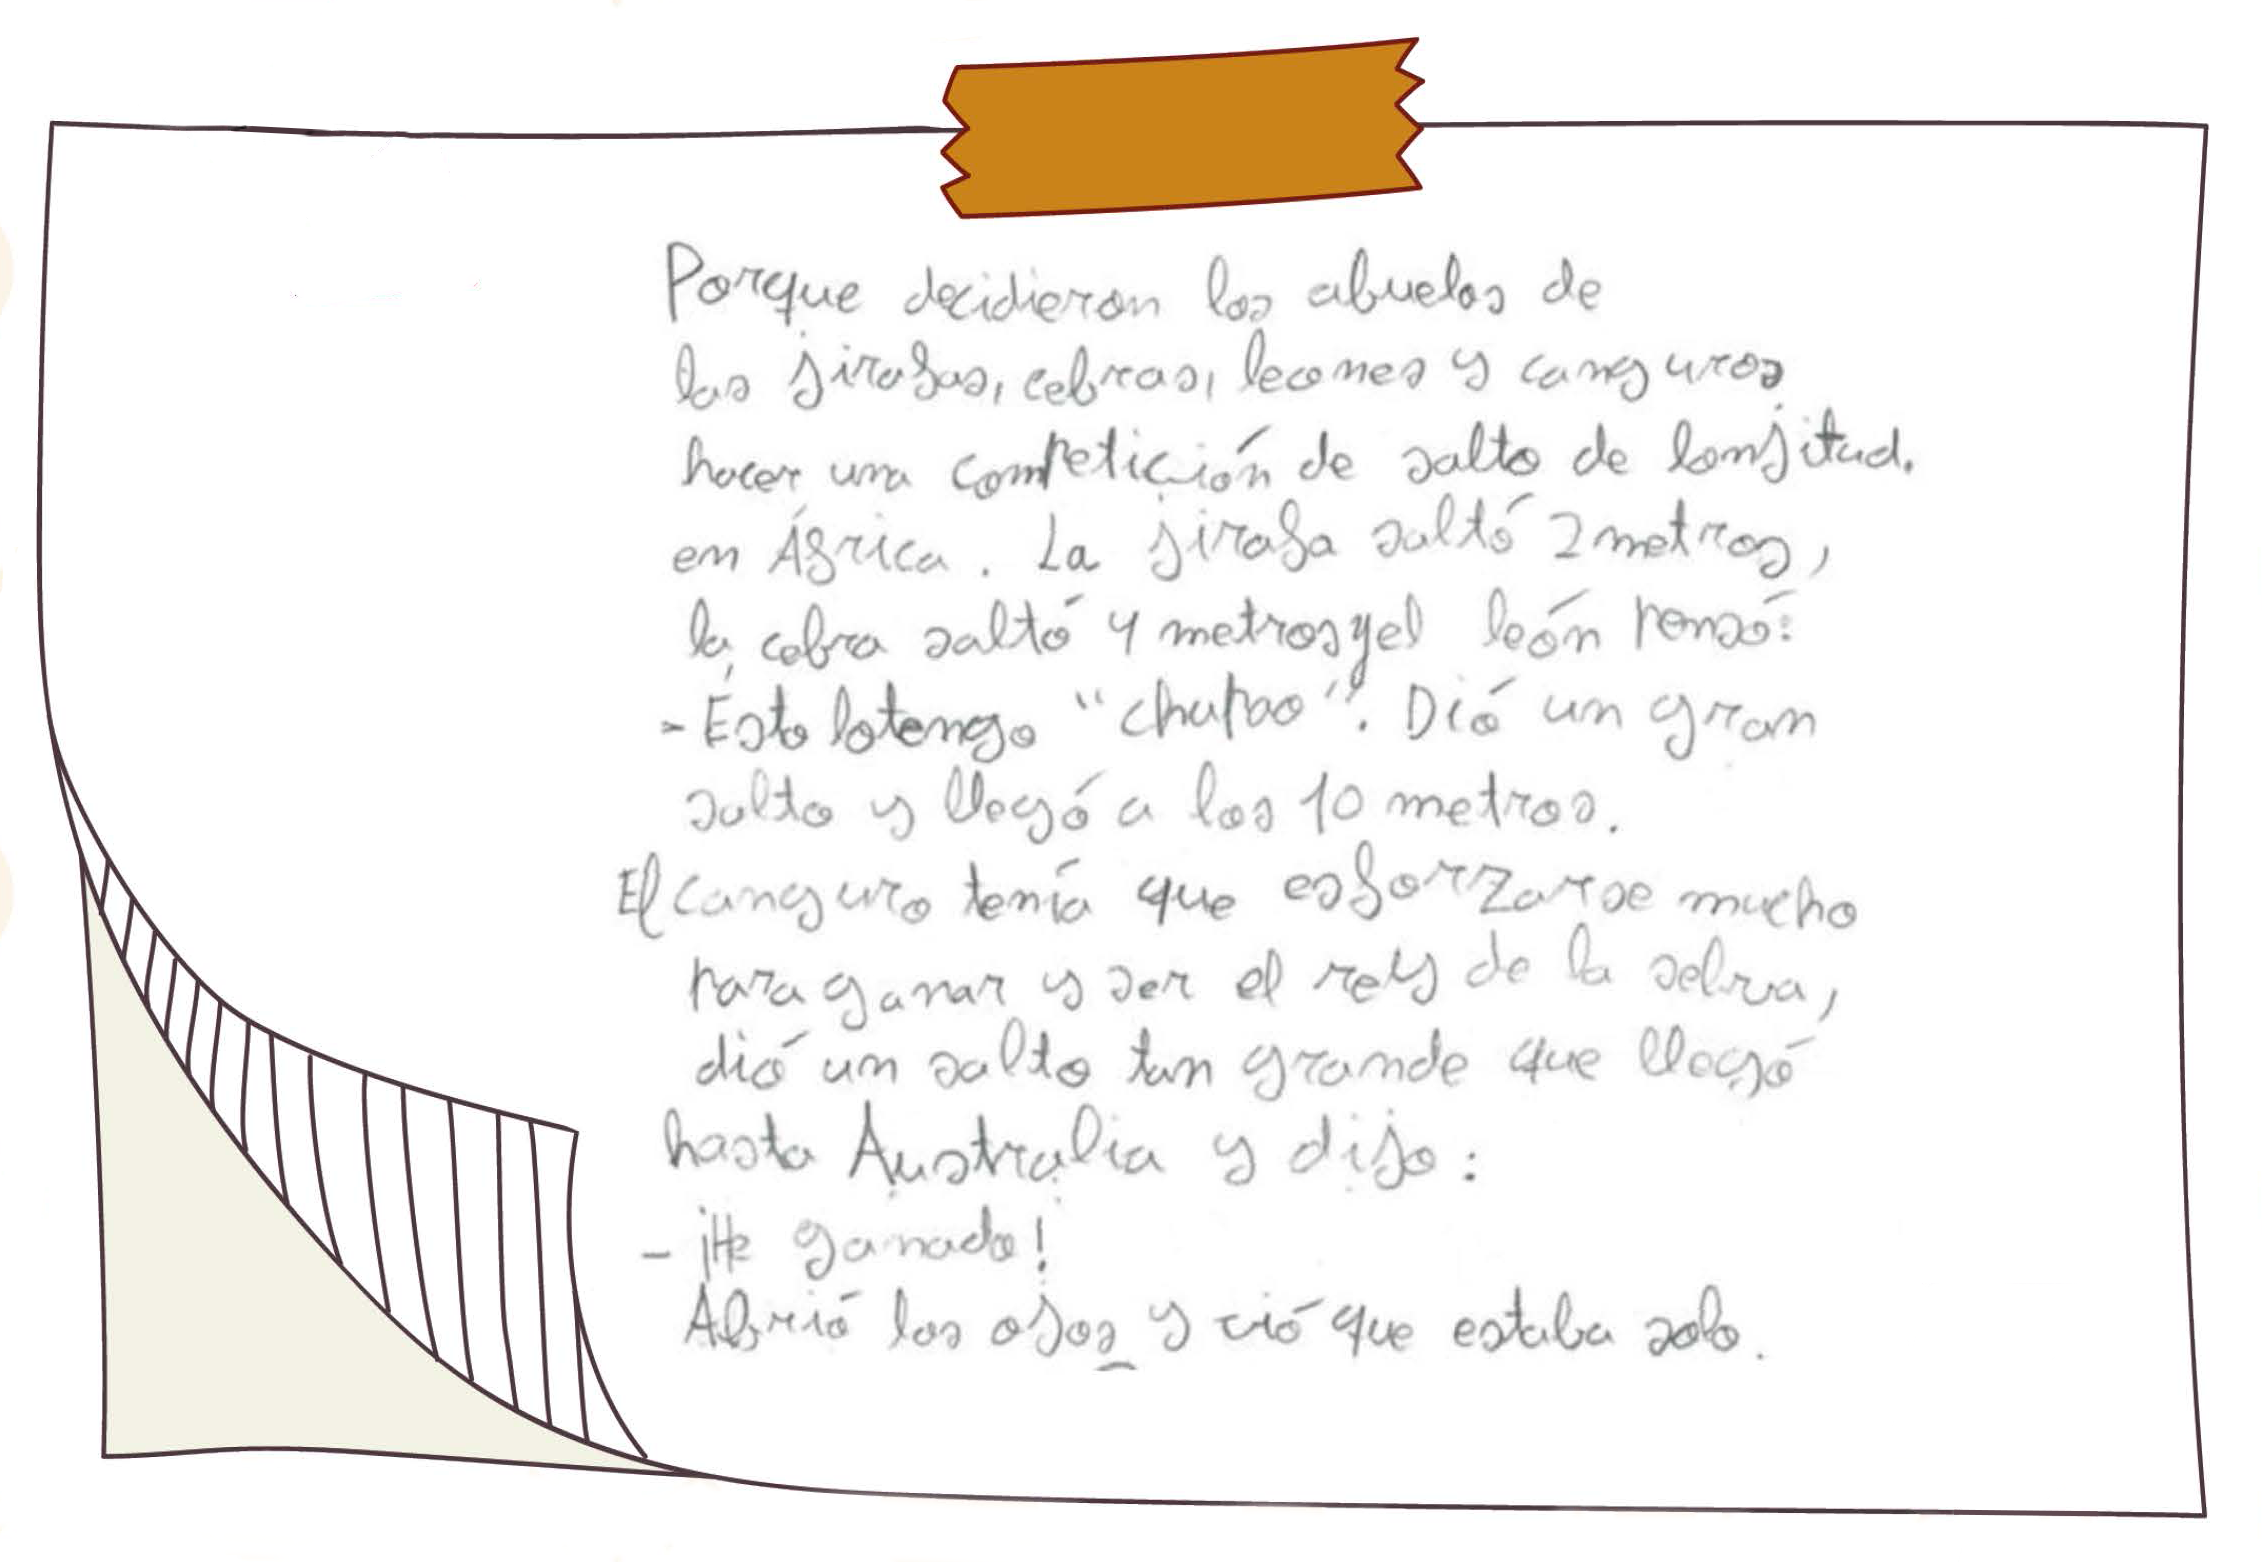 Porque decidieron los abuelos de
las jirafas, cebras, leones y canguros
hacer una competición de salto de lonjitud.
en África. La jirafa saltó 2 metros,
la cebra saltó 4 metros y el león pensó:
- Ésto lo tengo "chupao". Dió un gran
salto y llegó a los 10 metros.
El canguro tenía que esforzarse mucho
para ganar y ser el rey de la selva,
dió un salto tan grande que llegó
hasta Australia y dijo:
- ¡He ganado!
Abrió los ojos y vió que estaba solo.